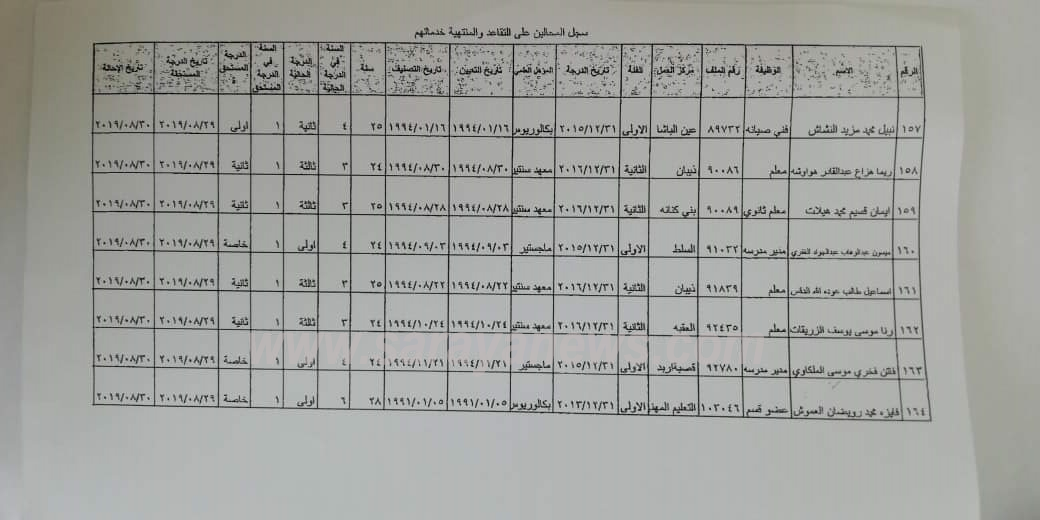 سجل المحالين على التقاعد والمنتهية خدماتهم
الرقم الاسم الوظيفة رقم الملف مركز العمل الفئة تاريخ الدرجة المؤهل العلمي تاريخ التعيين تاريخ التصنيف سنة السنة في الدرجة الحالية الدرجة الحالية السنة في الدرجة المستحق الدرجة المستحق ة تاريخ الدرجة المستحقة تاريخ الإحالة
١٥٧ نبيل محمد مزيد النشاش فني صيانه ٨٩٧٣٢ عين الباشا الاولى ٢٠١٥/١٢/٣١ بكالوريوس ١٩٩٤/٠١/١٦ ١٩٩٤/٠١/١٦ ٢٥ ٤ ثانية ١ اولى ٢٠١٩/٠٨/٢٩ ٢٠١٩/٠٨/٣٠
١٥٨ ريما هزاع عبدالقادر هواوشه معلم ٩٠٠٨٦ ذيبان الثانية ٢٠١٦/١٢/٣١ معهد سنتير ١٩٩٤/٠٨/٣٠ ١٩٩٤/٠٨/٣٠ ٢٤ ٣ ثالثة ١ ثانية ٢٠١٩/٠٨/٢٩ ٢٠١٩/٠٨/٣٠
١٥٩ ايمان قسيم محمد هيلات معلم ثانوي ٩٠٠٨٩ بني كنانه الثانية ٢٠١٦/١٢/٣١ معهد سنتير ١٩٩٤/٠٨/٢٨ ١٩٩٤/٠٨/٢٨ ٢٥ ٣ ثالثة ١ ثانية ٢٠١٩/٠٨/٢٩ ٢٠١٩/٠٨/٣٠
١٦٠ ميسون عبدالوهاب عبدالجواد مدير مدرسه ٩١٠٣٢ السلط الاولى ٢٠١٥/١٢/٣١ ماجستير ١٩٩٤/٠٩/٠٣ ١٩٩٤/٠٩/٠٣ ٢٤ ٤ اولى ١ خاصة ٢٠١٩/٠٨/٢٩ ٢٠١٩/٠٨/٣٠
١٦١ اسماعيل طالب عوده الله معلم ٩١٨٣٩ ذيبان الثانية ٢٠١٦/١٢/٣١ معهد سنتير ١٩٩٤/٠٨/٢٢ ١٩٩٤/٠٨/٢٢ ٢٥ ٣ ثالثة ١ ثانية ٢٠١٩/٠٨/٢٩ ٢٠١٩/٠٨/٣٠
١٦٢ رنا موسى يوسف الزريقات معلم ٩٢٤٣٥ العقبه الثانية ٢٠١٦/١٢/٣١ معهد سنتير ١٩٩٤/١٠/٢٤ ١٩٩٤/١٠/٢٤ ٢٤ ٣ ثالثة ١ ثانية ٢٠١٩/٠٨/٢٩ ٢٠١٩/٠٨/٣٠
١٦٣ فاتن فخري موسى الملكاوي مدير مدرسه ٩٢٧٨٠ قصبةاربد الاولى ٢٠١٥/١٢/٣١ ماجستير ١٩٩٤/١١/٢١ ١٩٩٤/١١/٢١ ٢٤ ٤ اولى ١ خاصة ٢٠١٩/٠٨/٢٩ ٢٠١٩/٠٨/٣٠
١٦٤ فايزه محمد رويضان العموش عضو قسم ١٠٣٠٤٦ التعليم المهن الاولى ٢٠١٣/١٢/٣١ بكالوريوس ١٩٩١/٠١/٠٥ ١٩٩١/٠١/٠٥ ٢٨ ٦ اولى ١ خاصة ٢٠١٩/٠٨/٢٩ ٢٠١٩/٠٨/٣٠
www.sarayanews.com